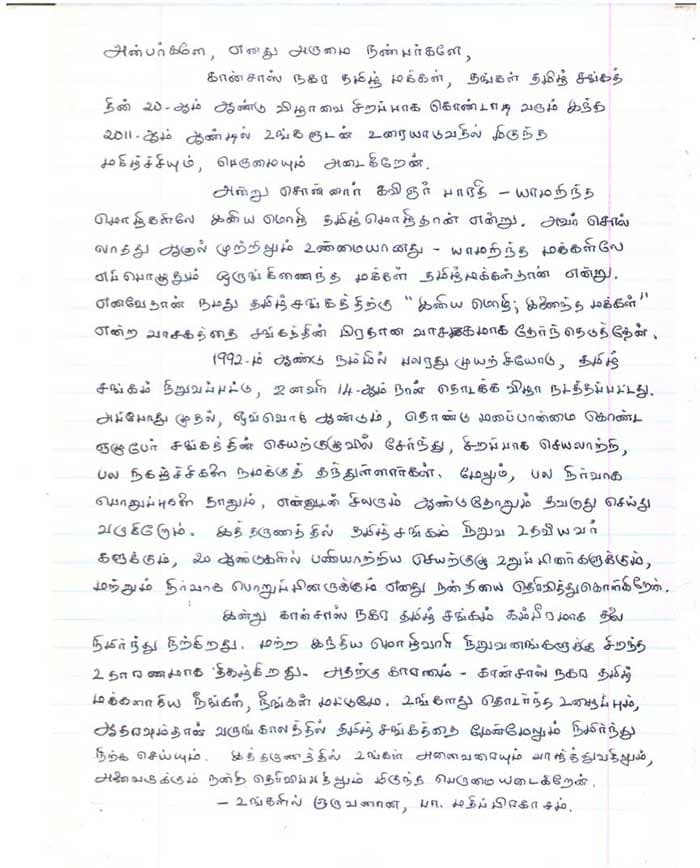 அன்பர்களே, எனது அருமை நண்பர்களே,
கான்சாஸ் நகர தமிழ் மக்கள், தங்கள் தமிழ் சங்கத்
தின் 20-ஆம் ஆண்டு விழாவை சிறப்பாக கொண்டாடி வரும் இந்த
2011-ஆம் ஆண்டில் உங்களுடன் உரையாடுவதில் மிகுந்த
மகிழ்ச்சியும், பெருமையும் அடைகிறேன்.
அன்று சொன்னார் கவிஞர் பாரதி - யாமறிந்த
மொழிகளிலே இனிய மொழி தமிழ்மொழிதான் என்று. அவர் சொல்
லாதது ஆனால் முற்றிலும் உண்மையானது - யாமறிந்த மக்களிலே
எப்பொழுதும் ஒருங்கிணைந்த மக்கள் தமிழ்மக்கள்தான் என்று.
எனவேதான் நமது தமிழ்சங்கத்திற்கு "இனிய மொழி; இணைந்த மக்கள்"
என்ற வாசகத்தை சங்கத்தின் பிரதான வாசகமாக தேர்ந்தெடுத்தேன்.
1992-ம் ஆண்டு நம்மில் பலரது முயற்சியோடு, தமிழ்
சங்கம் நிறுவப்பட்டு, ஜனவரி 14-ஆம் நாள் தொடக்க விழா நடத்தப்பட்டது.
அப்போது முதல், ஒவ்வொரு ஆண்டும், தொண்டு மனப்பான்மை கொண்ட
ஏழுபேர் சங்கத்தின் செயற்குழுவில் சேர்ந்து, சிறப்பாக செயலாற்றி,
பல நிகழ்ச்சிகளை நமக்குத் தந்துள்ளார்கள். மேலும், பல நிர்வாக
பொறுப்புகளை நானும், என்னுடன் சிலரும் ஆண்டுதோறும் தவறாது செய்து
வருகிறோம். இத்தருணத்தில் தமிழ் சங்கம் நிறுவ உதவியவர்
களுக்கும், 20 ஆண்டுகளில் பணியாற்றிய செயற்குழு உறுப்பினர்களுக்கும்,
மற்றும் நிர்வாக பொறுப்பினருக்கும் எனது நன்றியை தெரிவித்துகொள்கிறேன்.
இன்று கான்சாஸ் நகர தமிழ் சங்கம் கம்பீரமாக தலை
நிமிர்ந்து நிற்கிறது. மற்ற இந்திய மொழிவாரி நிறுவனங்களுக்கு சிறந்த
உதாரணமாக திகழ்கிறது. அதற்கு காரணம் - கான்சாஸ் நகர தமிழ்
மக்களாகிய நீங்கள், நீங்கள் மட்டுமே. உங்களது தொடர்ந்த உழைப்பும்,
ஆதரவும்தான் வருங்காலத்தில் தமிழ் சங்கத்தை மேன்மேலும் நிமிர்ந்து
நிற்க செய்யும். இத்தருணத்தில் உங்கள் அனைவரையும் வாழ்த்துவதிலும்,
அனைவருக்கும் நன்றி தெரிவிப்பதிலும் மிகுந்த பெருமையடைகிறேன்.
- உங்களில் ஒருவனான, பா. மதிப்பிரகாசம்.